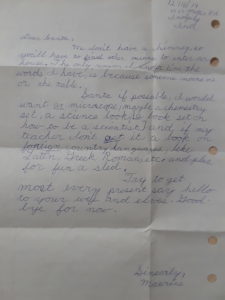 Dear Santa,
We don't have a chimney, so
you'll have to find other means to enter our
house. The only reason I
words I have is because someone
on the table.
Santa if possible, I would
want a microscope, maybe a chemistry
set, a science book, a book set on
how to be a scientist and if my
teacher dont get it a book on
foreign country languages like
Latin, Greek Roman, etc. and plus
for fun a sled.
Try to get
most every present say hello
to your wife and elves. Good-
bye for now.
Sincerely,
Maerine